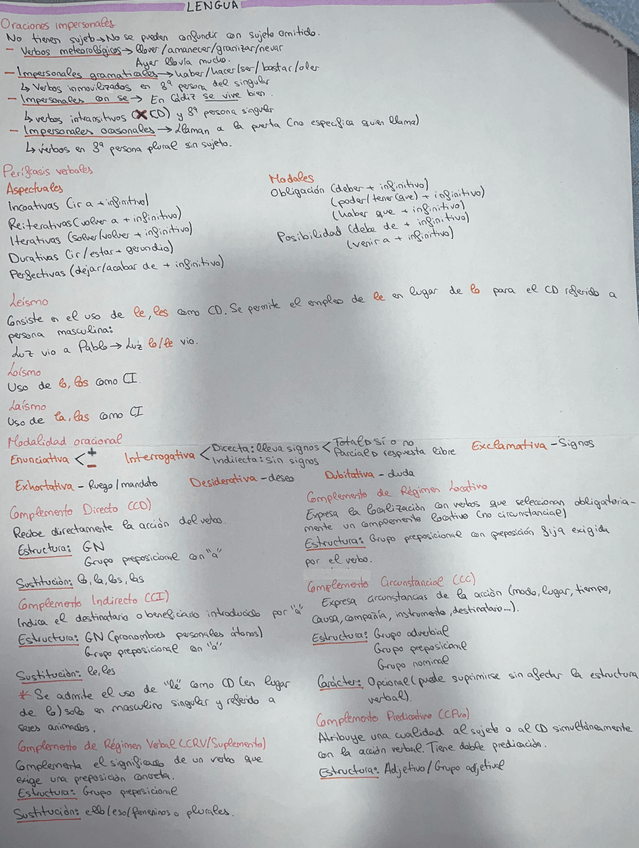 LENGUA
Oraciones impersonales
No tienen sujeto → No se pueden confundir con sujeto omitido.
- Verbos meteorológicos → llover/amanecer/granizar/nevar
Ayer llovía mucho.
- Impersonales gramaticales → haber/hacer/ser/bastar/oler
↳ Verbos inmovilizados en 3ª persona del singular
- Impersonales con se → En Cádiz se vive bien.
↳ verbos intransitivos (X CD) y 3ª persona singular
- Impersonales ocasionales → Llaman a la puerta (no especifica quien llama)
↳ verbos en 3ª persona plural sin sujeto.
Perífrasis verbales
Aspectuales
Incoativas (ir a + infinitivo)
Reiterativas (volver a + infinitivo)
Iterativas (soler/volver + infinitivo)
Durativas (ir/estar + gerundio)
Perfectivas (dejar/acabar de + infinitivo)
Modales
Obligación (deber + infinitivo)
(poder/tener (que) + infinitivo)
(haber que + infinitivo)
Posibilidad (debe de + infinitivo)
(venir a + infinitivo)
Leísmo
Consiste en el uso de le, les como CD. Se permite el empleo de le en lugar de lo para el CD referido a
persona masculina:
Luz vio a Pablo → Luz lo/le vio.
Loísmo
Uso de lo, los como CI
Laísmo
Uso de la, las como CI
Modalidad oracional
Enunciativa < + -
Interrogativa < Directa: lleva signos < Total → sí o no
Parcial → respuesta libre
Indirecta: sin signos
Exclamativa - Signos
Exhortativa - Ruego/mandato Desiderativa - deseo Dubitativa - duda
Complemento Directo (CD)
Recibe directamente la acción del verbo.
Estructura: GN
Grupo preposicional con "a"
Sustitución: lo, la, los, las
Complemento Indirecto (CI)
Indica el destinatario o beneficiario introducido por "a"
Estructura: GN (pronombres personales átonos)
Grupo preposicional con "a"
Sustitución: le, les
* Se admite el uso de "le" como CD (en lugar
de lo) solo en masculino singular y referido a
seres animados.
Complemento de Régimen Verbal (CRV/Suplemento)
Complementa el significado de un verbo que
exige una preposición concreta.
Estructura: Grupo preposicional
Sustitución: ello/eso/femeninos o plurales.
Complemento de Régimen Locativo
Expresa la localización con verbos que seleccionan obligatoria-
mente un complemento locativo (no circunstancial)
Estructura: Grupo preposicional con preposición fija exigida
por el verbo.
Complemento Circunstancial (CC)
Expresa circunstancias de la acción (modo, lugar, tiempo,
causa, compañía, instrumento, destinatario...).
Estructura: Grupo adverbial
Grupo preposicional
Grupo nominal
Carácter: Opcional (puede suprimirse sin afectar la estructura
verbal).
Complemento Predicativo (CPvo)
Atribuye una cualidad al sujeto o al CD simultáneamente
con la acción verbal. Tiene doble predicación.
Estructura: Adjetivo/Grupo adjetival